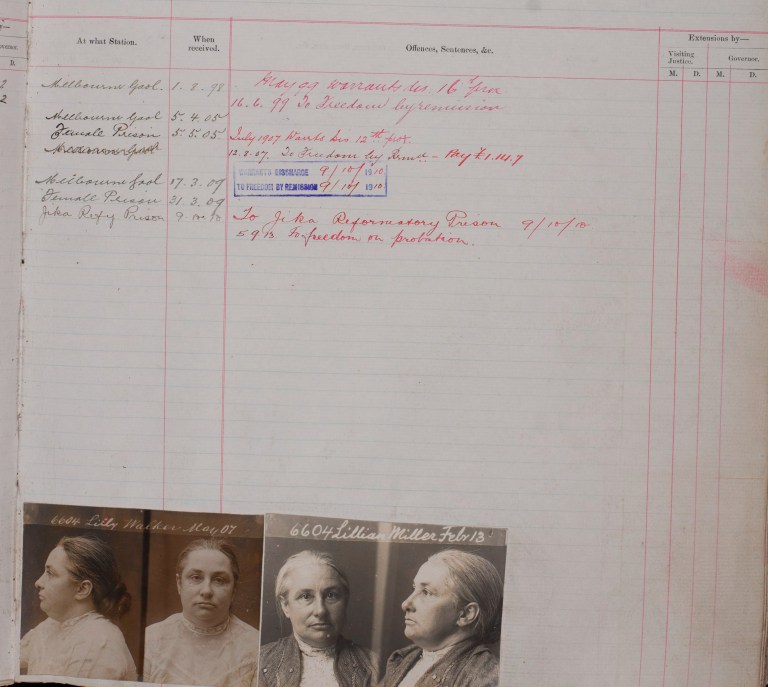 At what Station.
When received.
Offences, Sentences, &c.
Extensions by—
Visiting Justice.
Governor.
M. D. M. D.
D.
2
2
Melbourne Gaol. 1.8.98
May 99 Warrants les 16th Jun
16.6.99 To Freedom by remission
Melbourne Gaol 5.4.05
Female Prison 5.5.05
July 1907 Warrts 12th prox.
12.8.07. To Freedom by Remn. - Pay £1.111.7
WARRANTS DISCHARGE 9/10/1910
TO FREEDOM BY REMISSION 9/10/1910
Melbourne Gaol 17.3.09
Female Prison 31.3.09
Jika Refy. Prison 9.10.10
To Jika Reformatory Prison 9/10/10
5 9 13. To freedom on probation.
6604 Lilly Walker May 07
6604 Lillian Miller Feb. 13